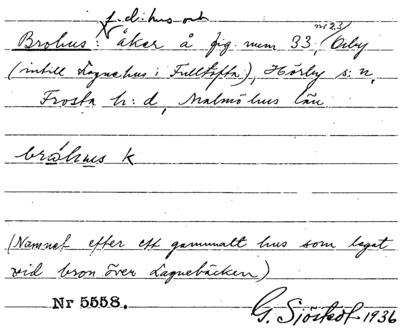 f. d. hus och
Brohus: åker å fig. num. 33, Osby
(intill Lagnehus i Fulltofta), Hörby s:n,
Frosta h:d, Malmöhus län
bråhus k
(Namnet efter ett gammalt hus som legat
vid bron över Lagnebäcken)
Nr 5558.
G. Sjöstedt 1936